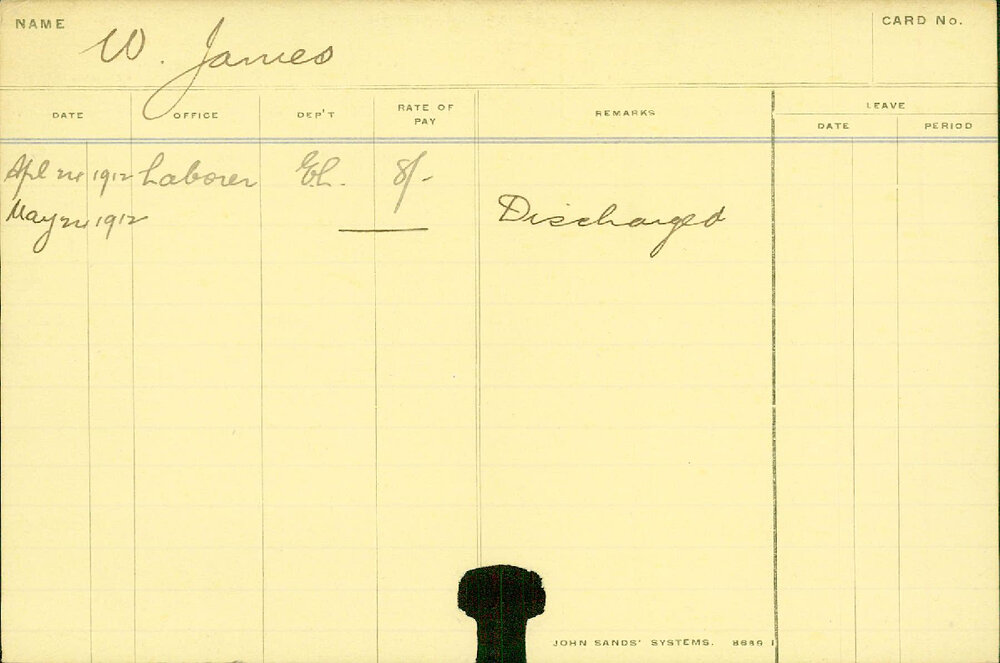 NAME W. James CARD No.
DATE OFFICE DEP'T RATE OF PAY REMARKS LEAVE
DATE PERIOD
Apl 24 1912 Laborer 8/-
May 24 1912 Discharged
JOHN SANDS' SYSTEMS.